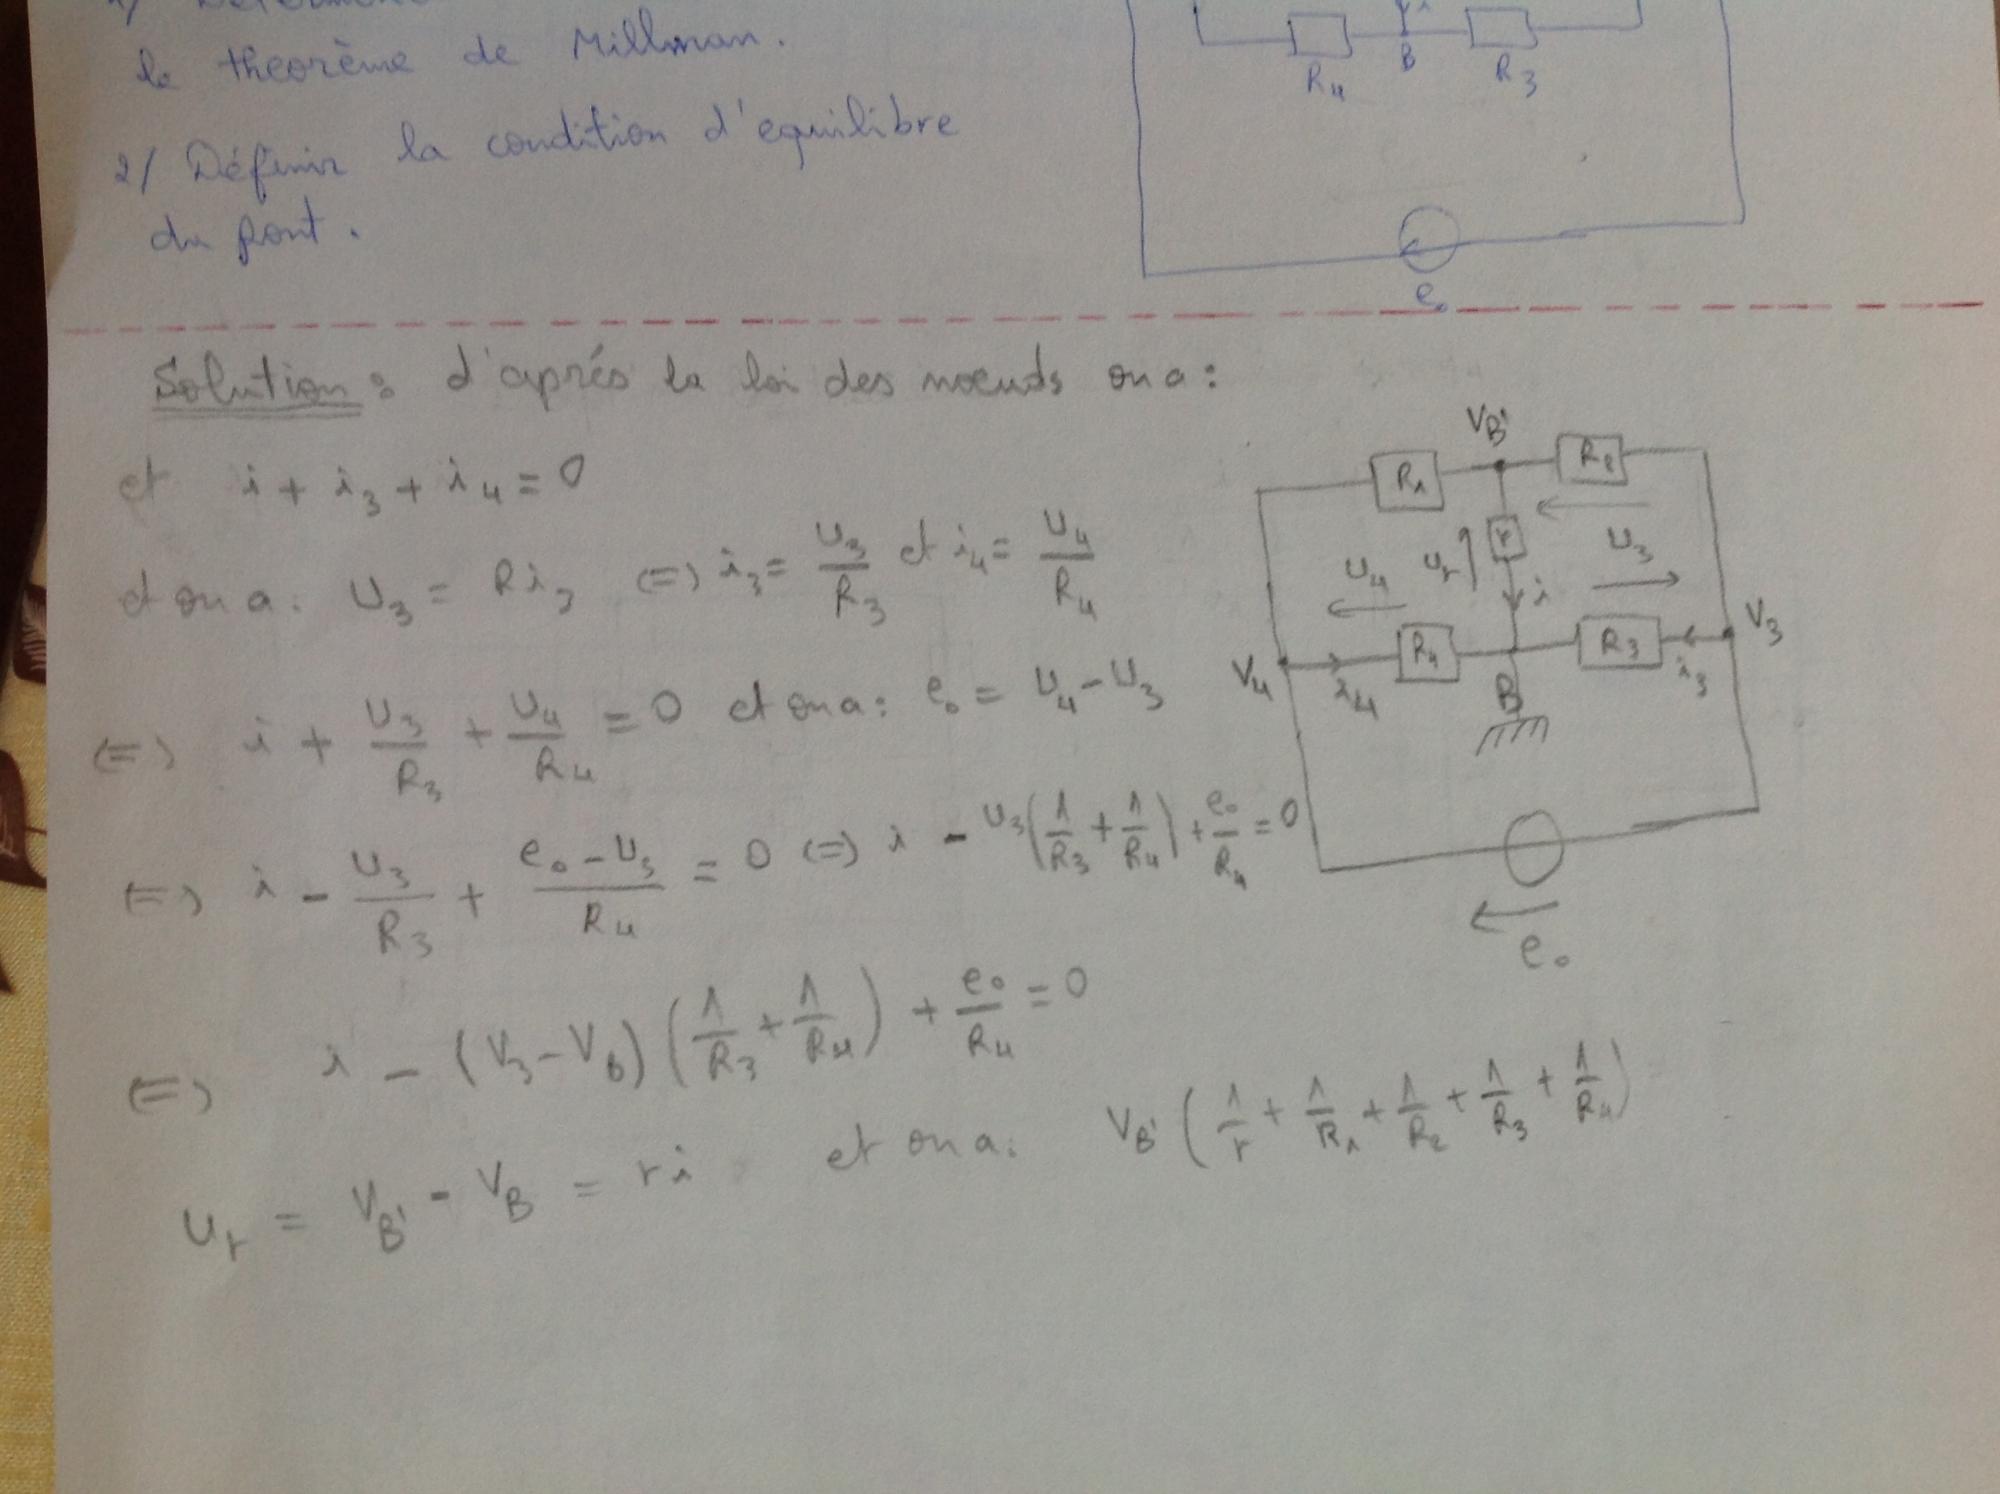 le theorème de Millman.
2/ Définir la condition d'equilibre
du pont.
R4 B R3
e₀
Solution : d'aprés la loi des noeuds on a :
et i + i₃ + i₄ = 0
et on a : U₃ = Ri₃ (=) i₃ = U₃/R₃ et i₄ = U₄/R₄
(=) i + U₃/R₃ + U₄/R₄ = 0 et on a : e₀ = U₄ - U₃
(=) i - U₃/R₃ + (e₀ - U₃)/R₄ = 0 (=) i - U₃(1/R₃ + 1/R₄) + e₀/R₄ = 0
(=) i - (V₃ - V_B)(1/R₃ + 1/R₄) + e₀/R₄ = 0
U_r = V_B' - V_B = ri et on a : V_B'(1/r + 1/R₁ + 1/R₂ + 1/R₃ + 1/R₄)
V_B'
R₁ R₂
r
U_r i
U₄ U₃
V₄ R₄ R₃ V₃
i₄ B i₃
e₀